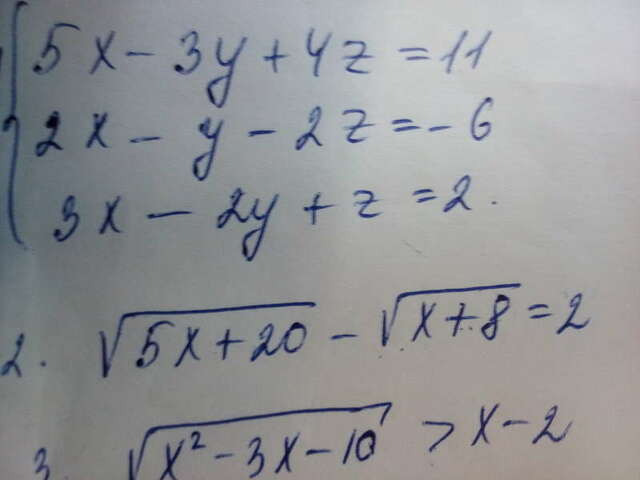 5x - 3y + 4z = 11
2x - y - 2z = - 6
3x - 2y + z = 2.
2. √(5x + 20) - √(x + 8) = 2
3. √(x² - 3x - 10) > x - 2